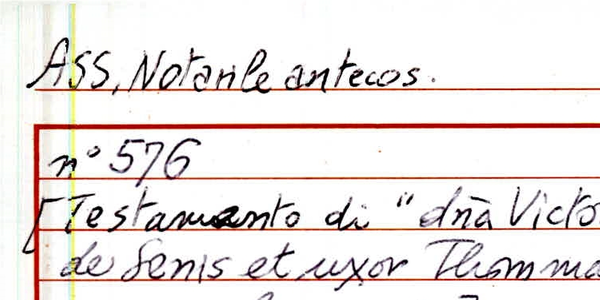 ASS, Notarile antecos.
n° 576
[Testamento di "dnā Victo
de Senis et uxor Thomma